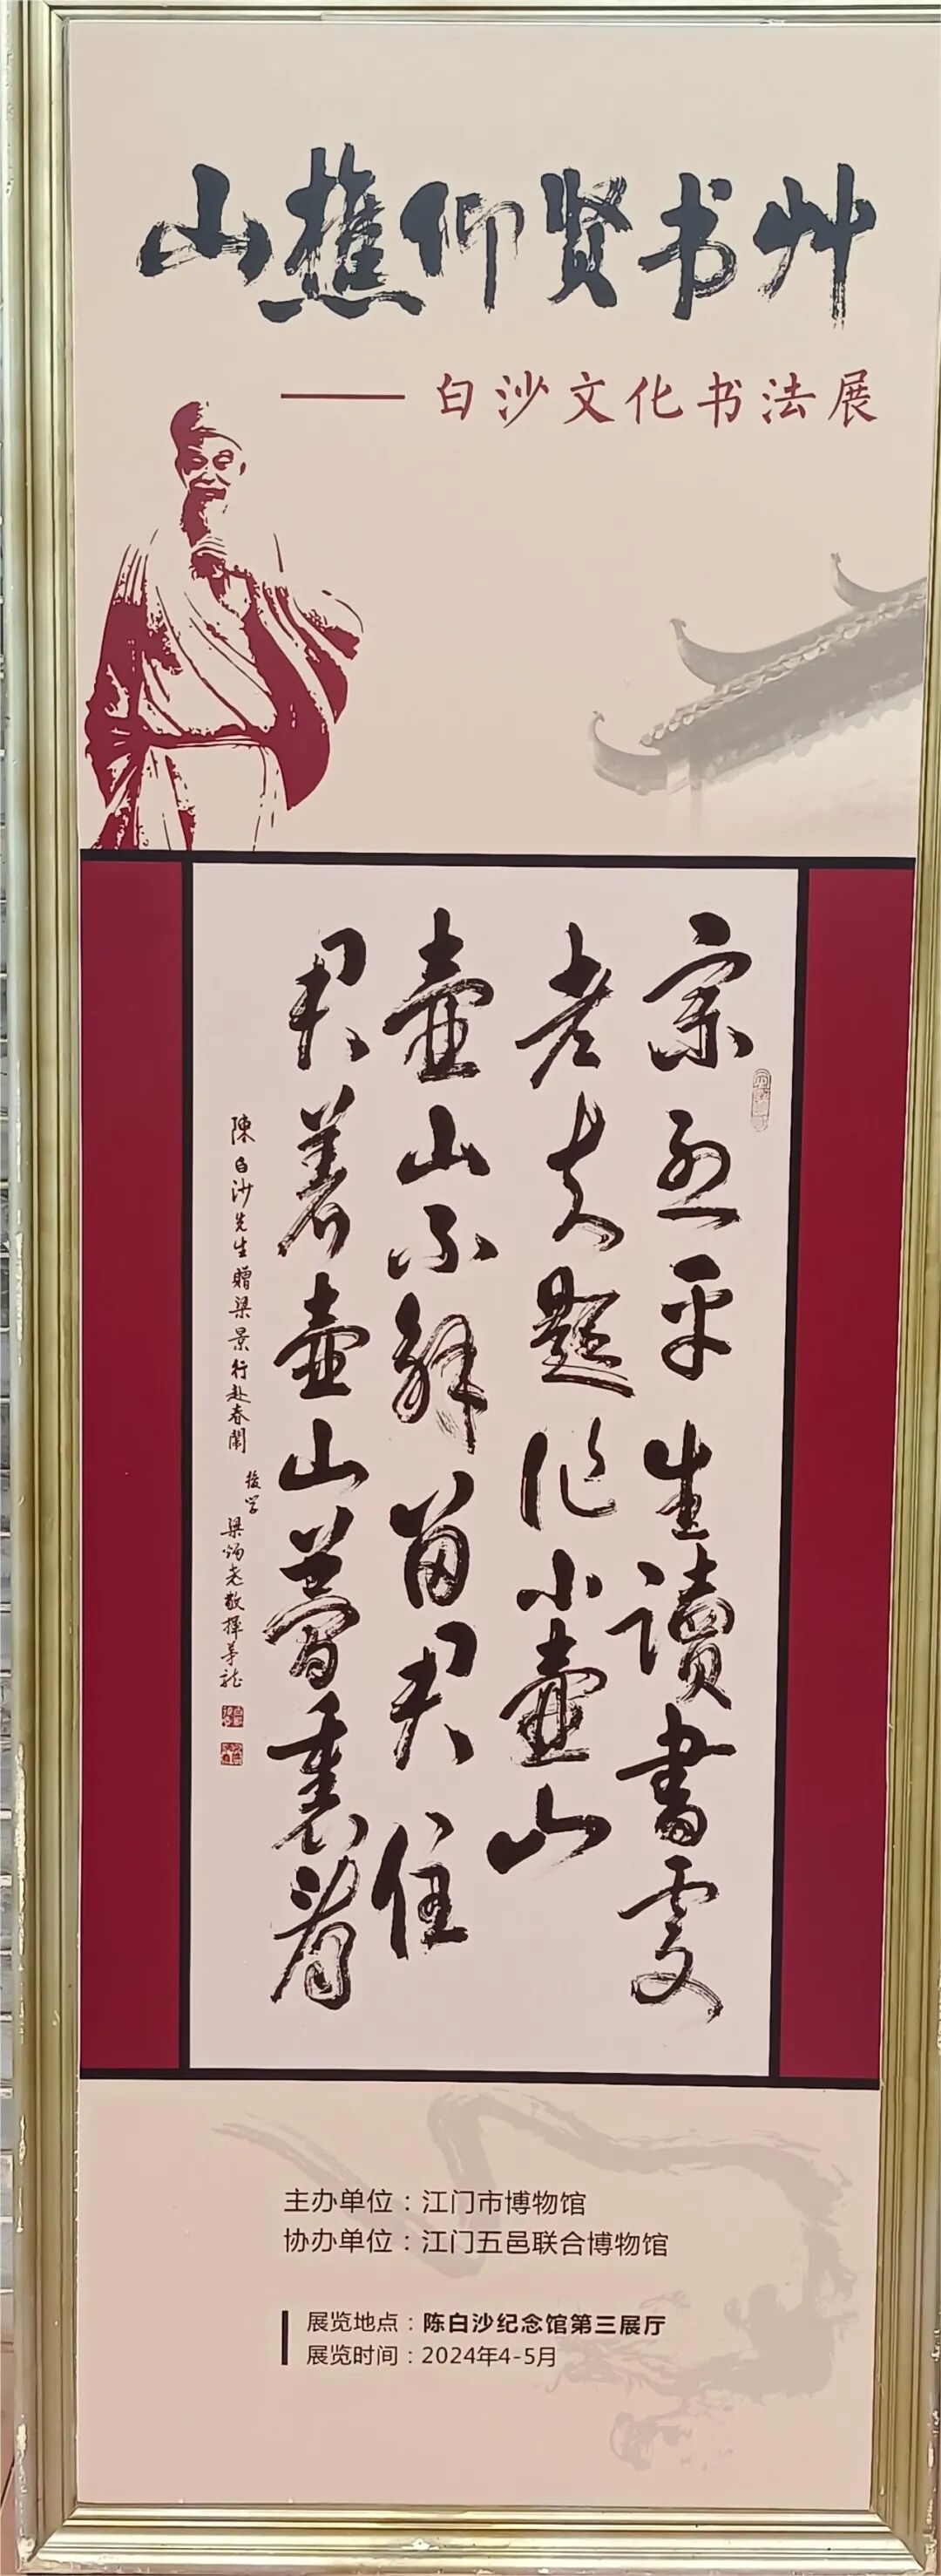 山樵仰贤书艸
——白沙文化书法展
宗烈平生讀書處
老夫題作小壺山
壺山不解留君住
君着壺山夢裏看
陳白沙先生贈梁景行赴春闈
後学
梁敬揮茅龍
主办单位：江门市博物馆
协办单位：江门五邑联合博物馆
展览地点：陈白沙纪念馆第三展厅
展览时间：2024年4-5月